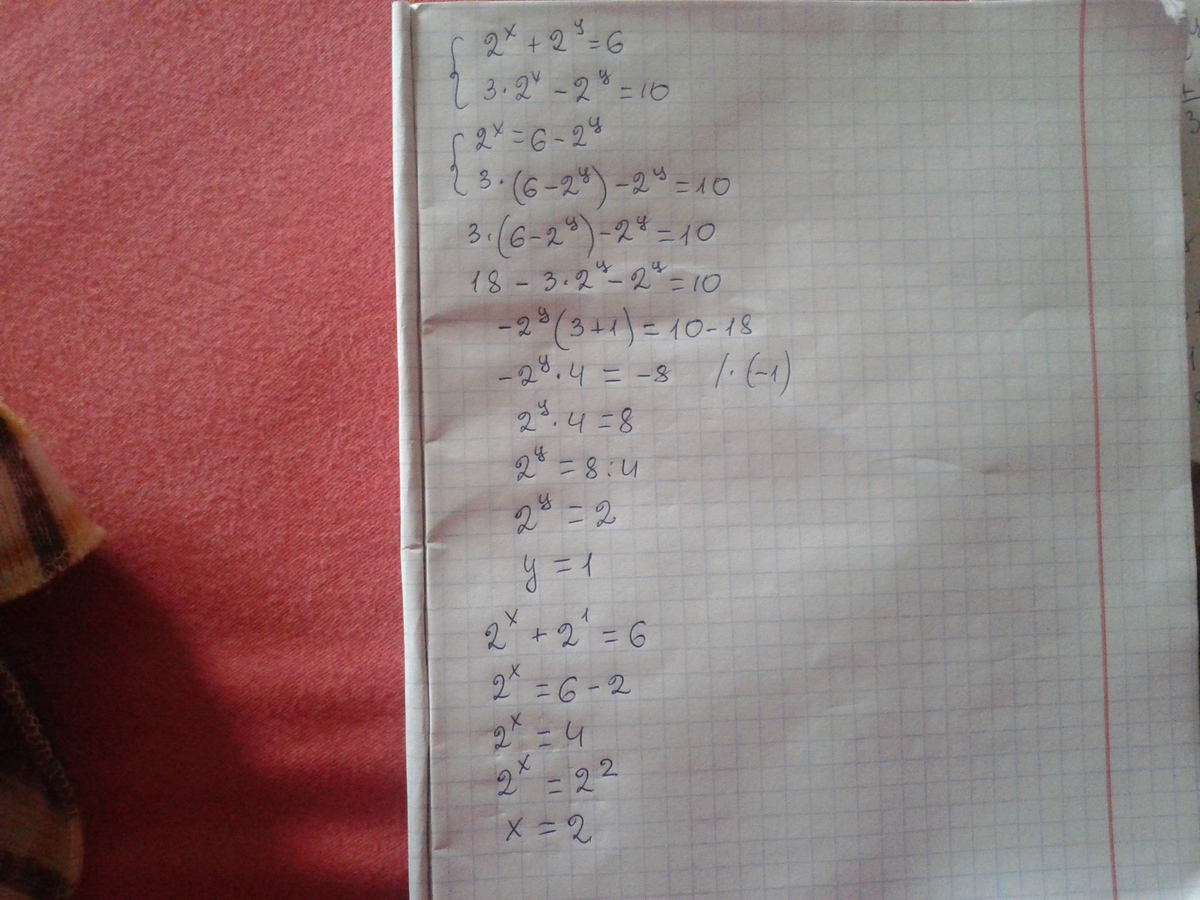 { 2^x + 2^y = 6
3·2^x - 2^y = 10
{ 2^x = 6 - 2^y
3·(6 - 2^y) - 2^y = 10
3·(6 - 2^y) - 2^y = 10
18 - 3·2^y - 2^y = 10
-2^y (3+1) = 10 - 18
-2^y · 4 = -8 /·(-1)
2^y · 4 = 8
2^y = 8:4
2^y = 2
y = 1
2^x + 2^1 = 6
2^x = 6 - 2
2^x = 4
2^x = 2^2
x = 2